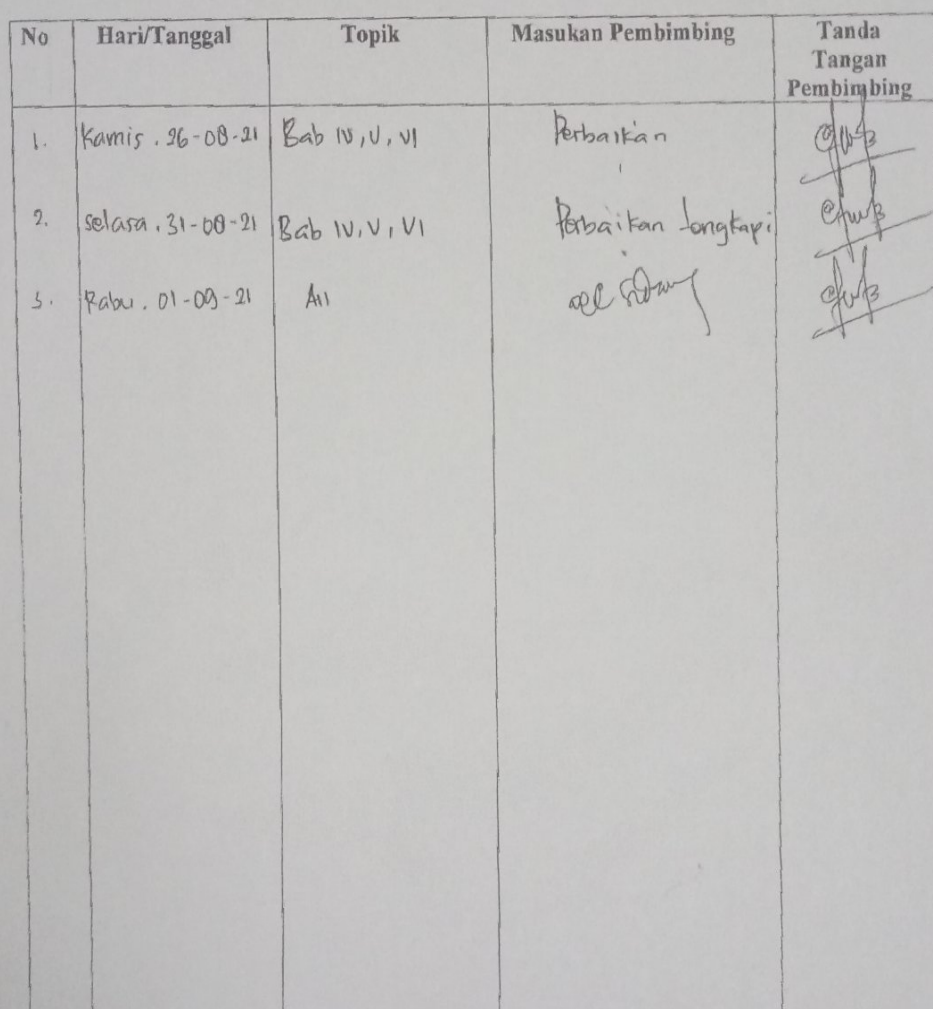 No Hari/Tanggal Topik Masukan Pembimbing Tanda
Tangan
Pembimbing
1. Kamis. 26-08-21 Bab IV, V, VI Perbaikan
2. Selasa. 31-08-21 Bab IV, V, VI Perbaikan Lengkapi
3. Rabu. 01-09-21 All